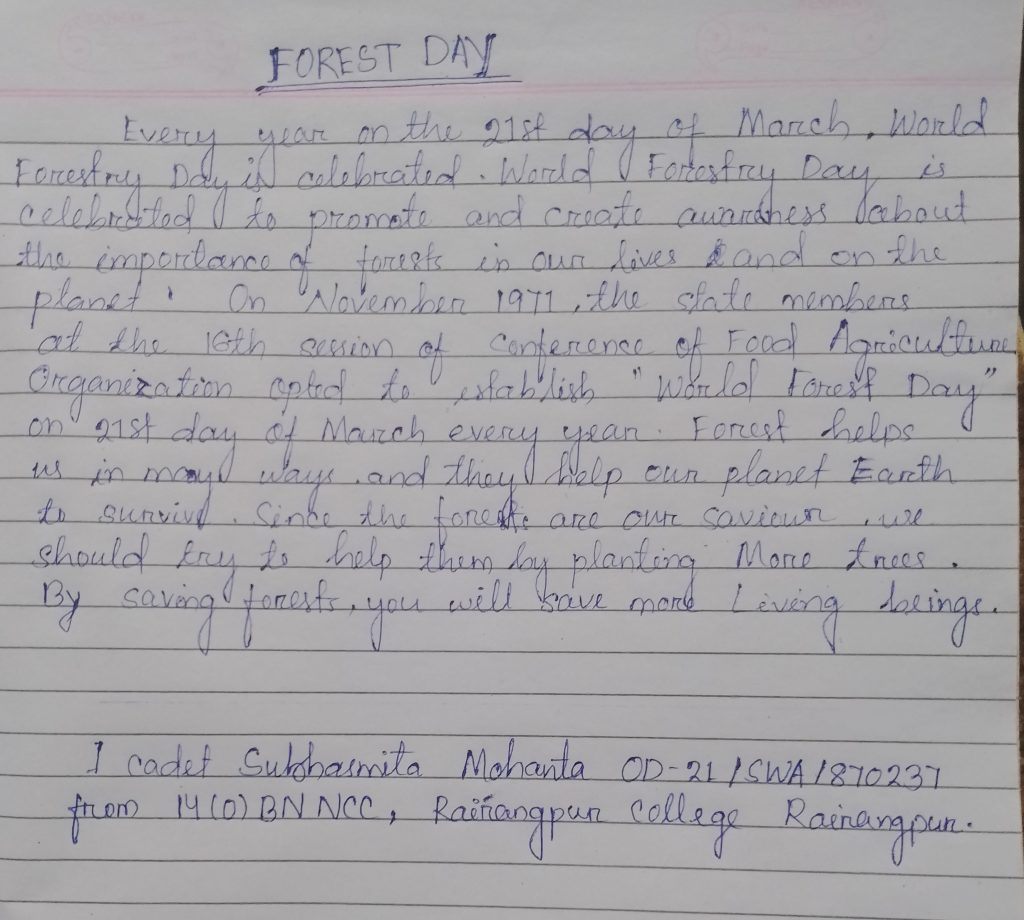 FOREST DAY
Every year on the 21st day of March, World
Forestry Day is celebrated. World Forestry Day is
celebrated to promote and create awardness about
the importance of forests in our lives and on the
planet. On November 1971, the state members
at the 16th session of Conference of Food Agriculture
Organization opted to establish "World Forest Day"
on 21st day of March every year. Forest helps
us in many ways and they help our planet Earth
to survive. Since the forests are our saviour, we
should try to help them by planting More trees.
By saving forests, you will save more Living beings.
I cadet Subhasmita Mohanta OD-21/SWA/870237
from 14(O) BN NCC, Rairangpur College Rairangpur.